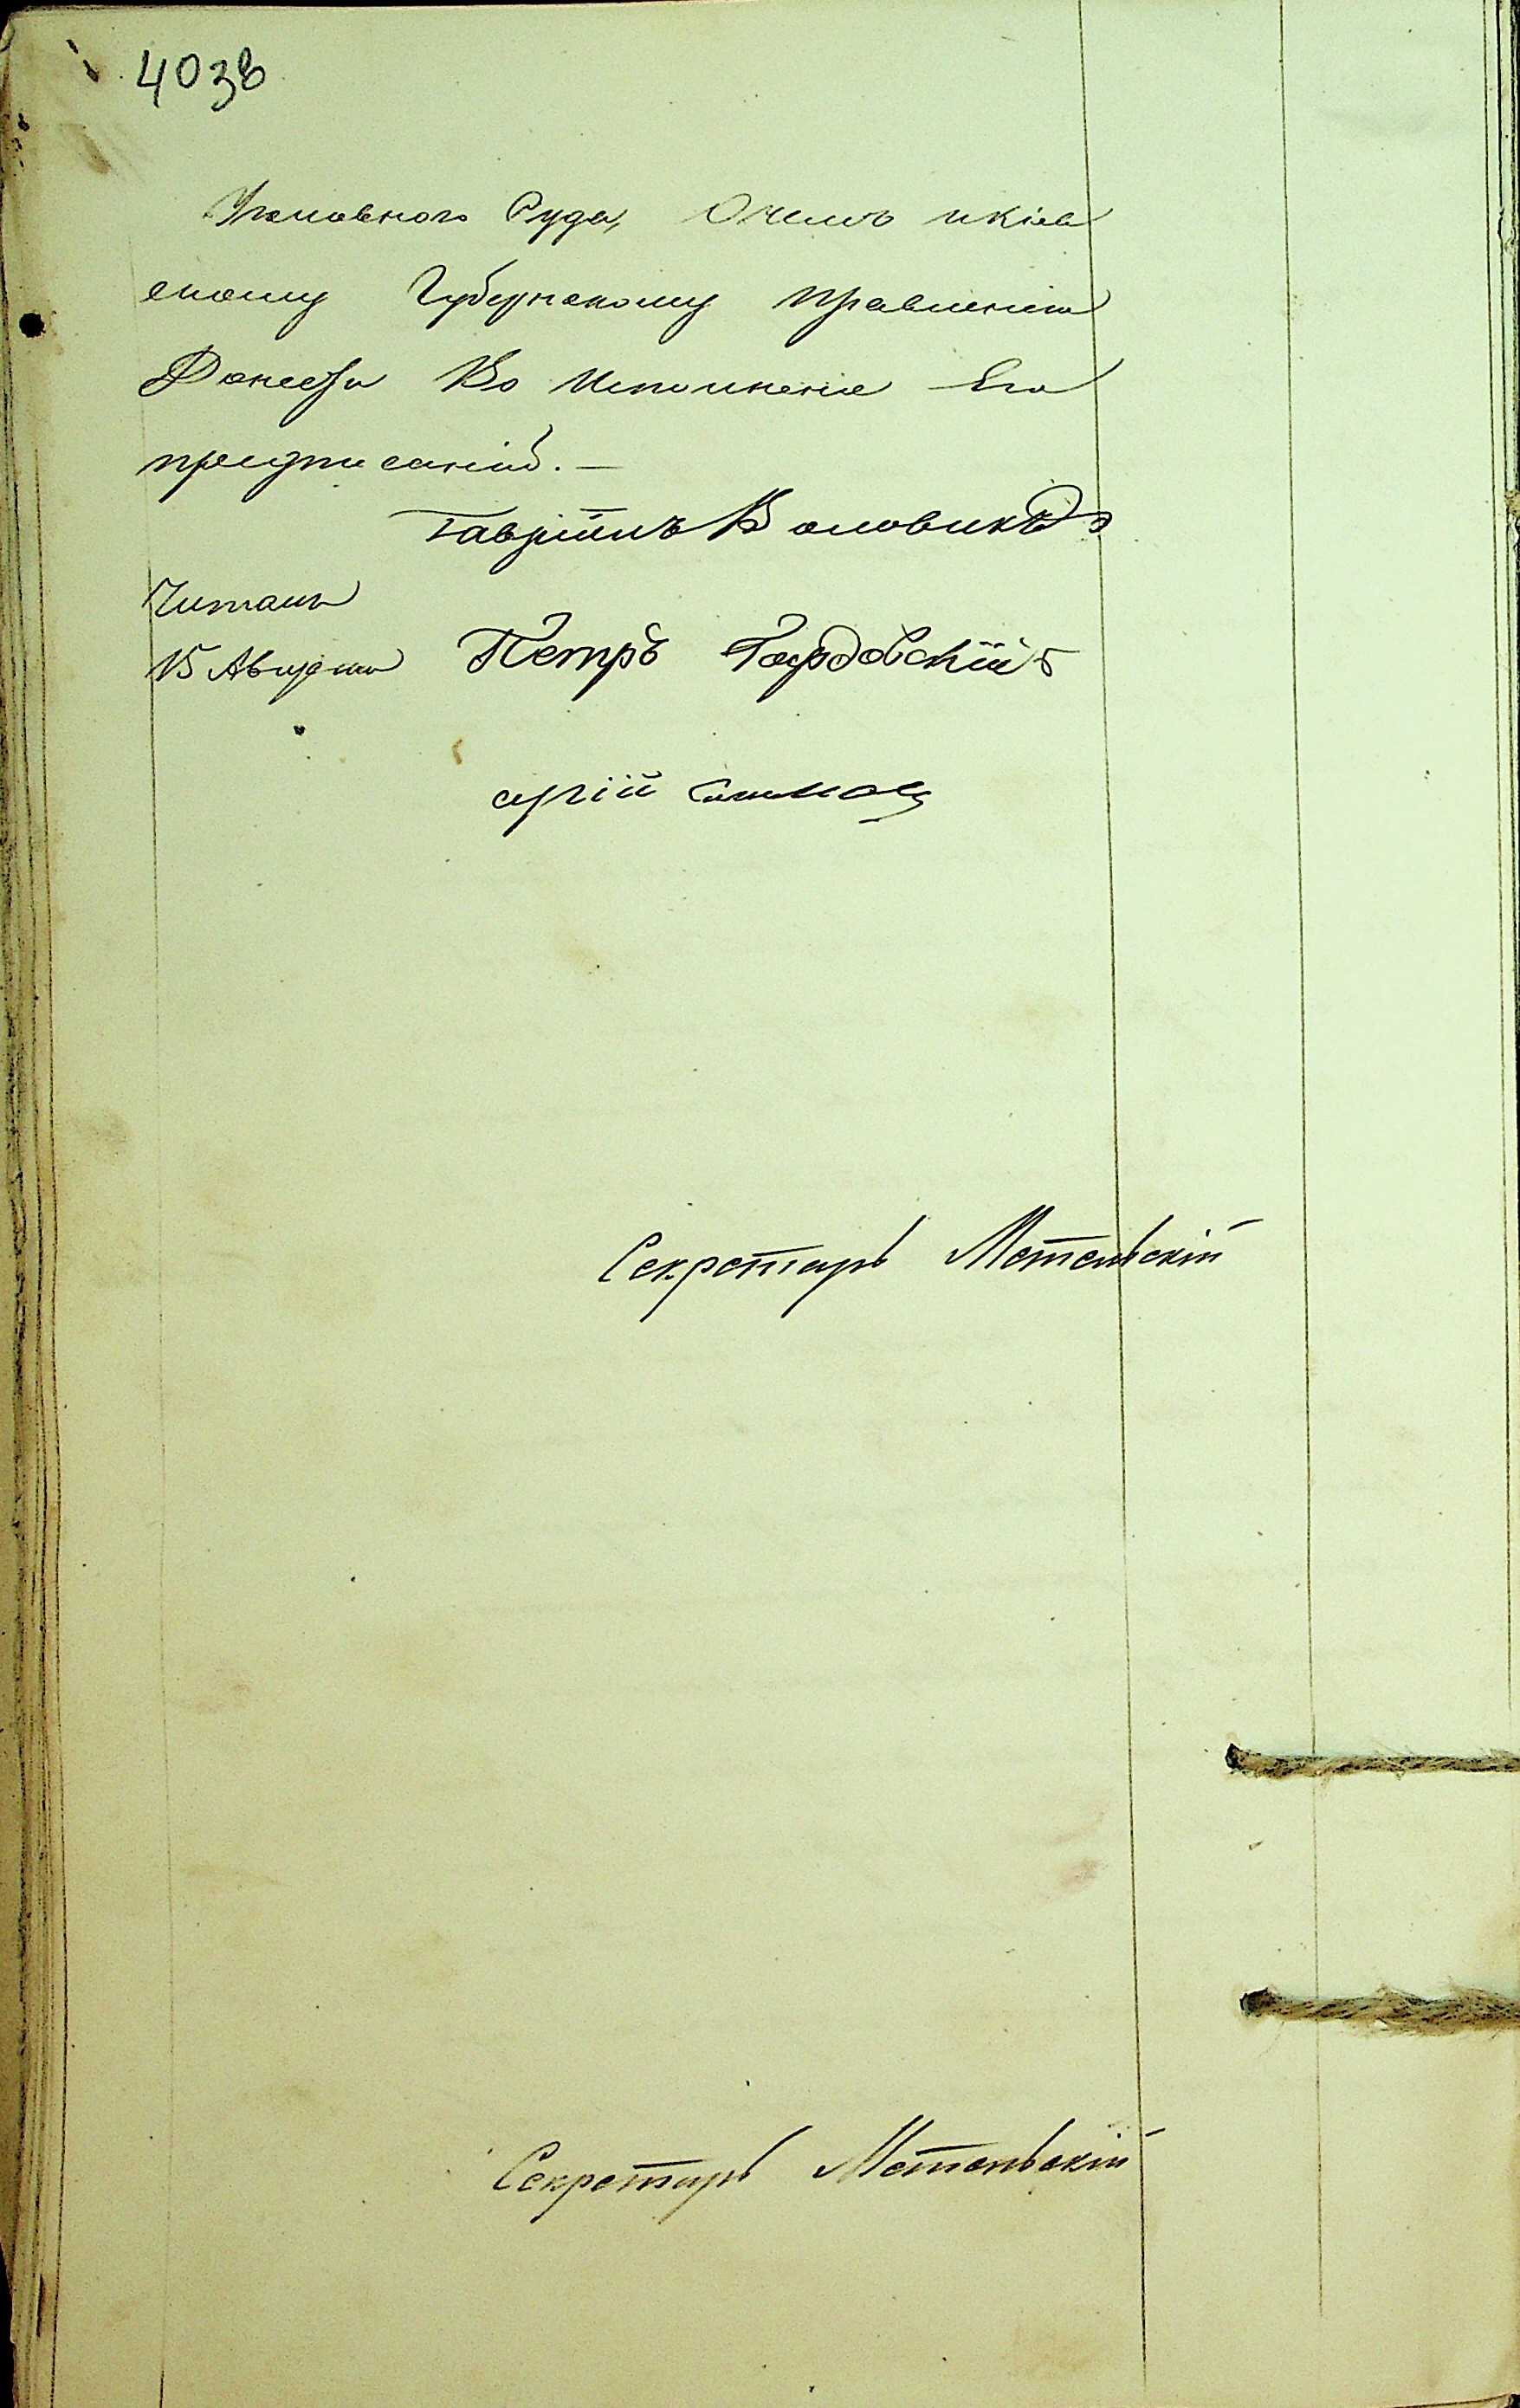 403в
Уголовного Суда, О чемъ и Кіев
скому Губернскому Правленію
Донести Во Исполненіе Его
предписаній.—
Гавріилъ Воловикъ
Читалъ
15 Августа Петръ Гордовскій
Сергій
Секретарь Метельскій
Секретарь Метельскій